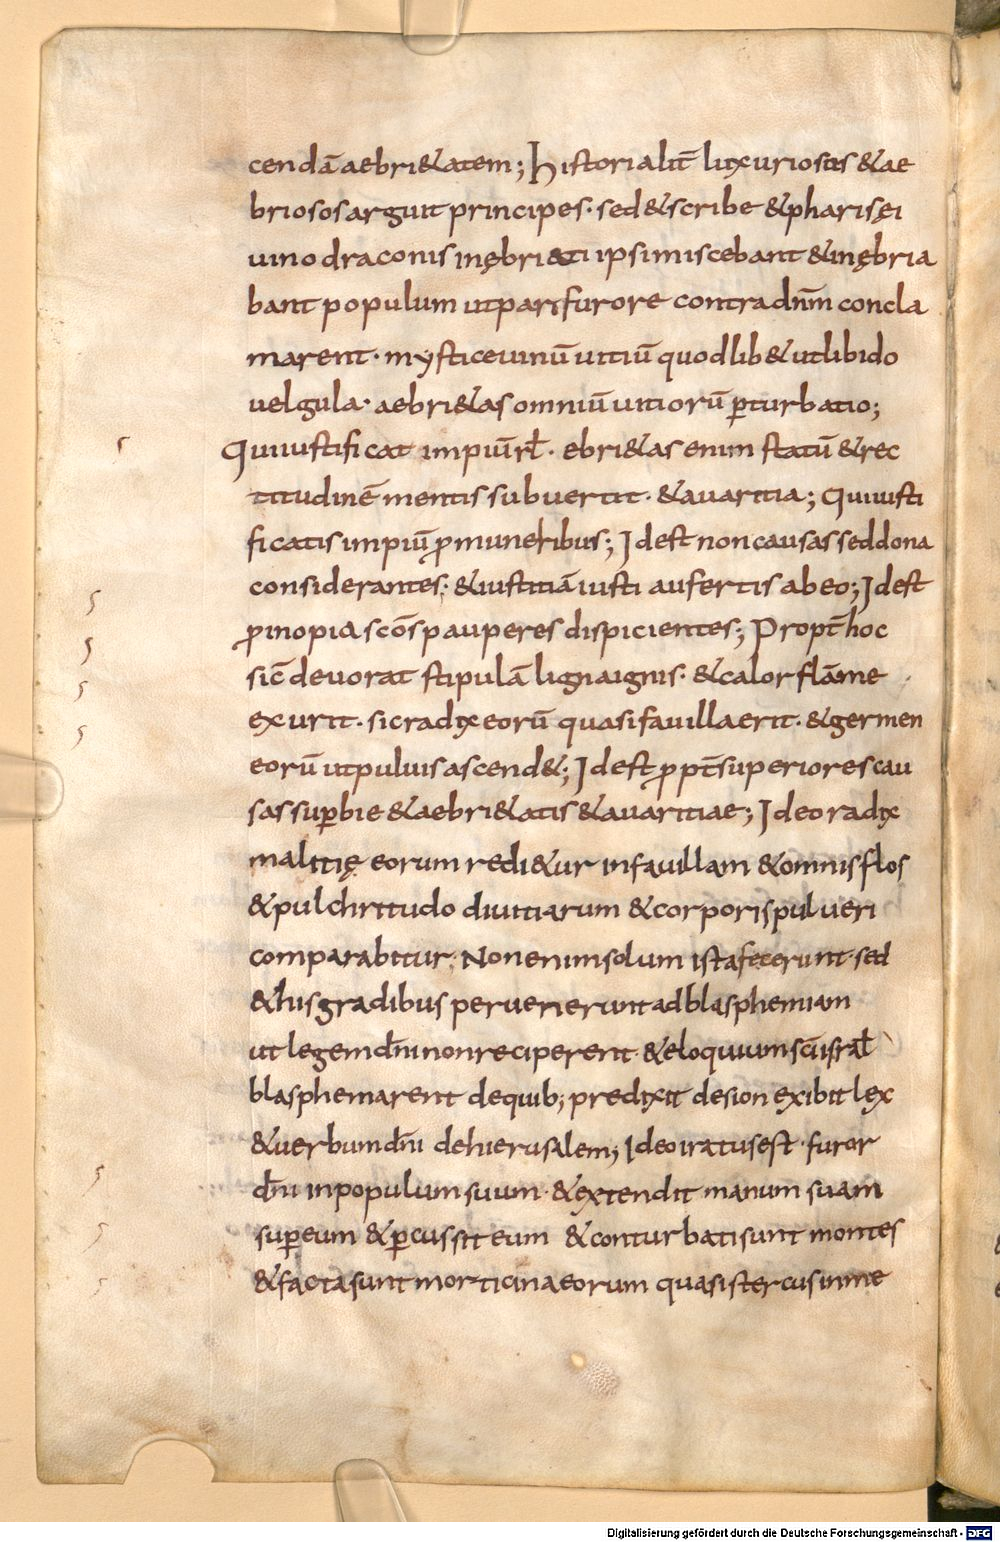 cendā aebri&atem; historialit̄ luxuriosos &ae
briosos arguit principes· sed &scribe &pharisęi
uino draconis inębriati ipsi miscebant &inębria
bant populum ut pari furore contra dn̄m concla
marent· mystice uinū uitiū quodlib& ut libido
uel gula· aebri&as omniū uitiorū ꝑturbatio;
Qui iustificat impiū rł· ebri&as enim statū &rec
titudinē mentis subuertit· &auaritia; Qui iusti
ficatis impiū ꝓ muneribus; Idest non causas sed dona
considerantes· &iustitiā iusti aufertis ab eo; Idest
ꝓ inopia scōs pauperes dispicientes; Propt̄ hoc
sic̄ deuorat stipulā ligna ignis· &calor flāme
exurit· sic radix eorū quasi fauilla erit· &germen
eorū ut puluis ascend&; Idest ꝓpt̄ superiores cau
sas suꝑbie &aebri&atis &auaritiae; Ideo radix
malitię eorum redi&ur in fauillam &omnis flos
&pulchritudo diuitiarum &corporis pulueri
comparabitur· Non enim solum ista fecerunt· sed
&his gradibus peruenerunt ad blasphemiam
ut legem dn̄i non reciperent· &eloquium sc̄i israł
blasphemarent de quib; predixit de sion exibit lex
&uerbum dn̄i de hierusalem; Ideo iratus est· furor
dn̄i in populum suum· &extendit manum suam
suꝑ eum &ꝑcussit eum &conturbati sunt montes
&facta sunt morticina eorum quasi stercus in me
Digitalisierung gefördert durch die Deutsche Forschungsgemeinschaft - DFG